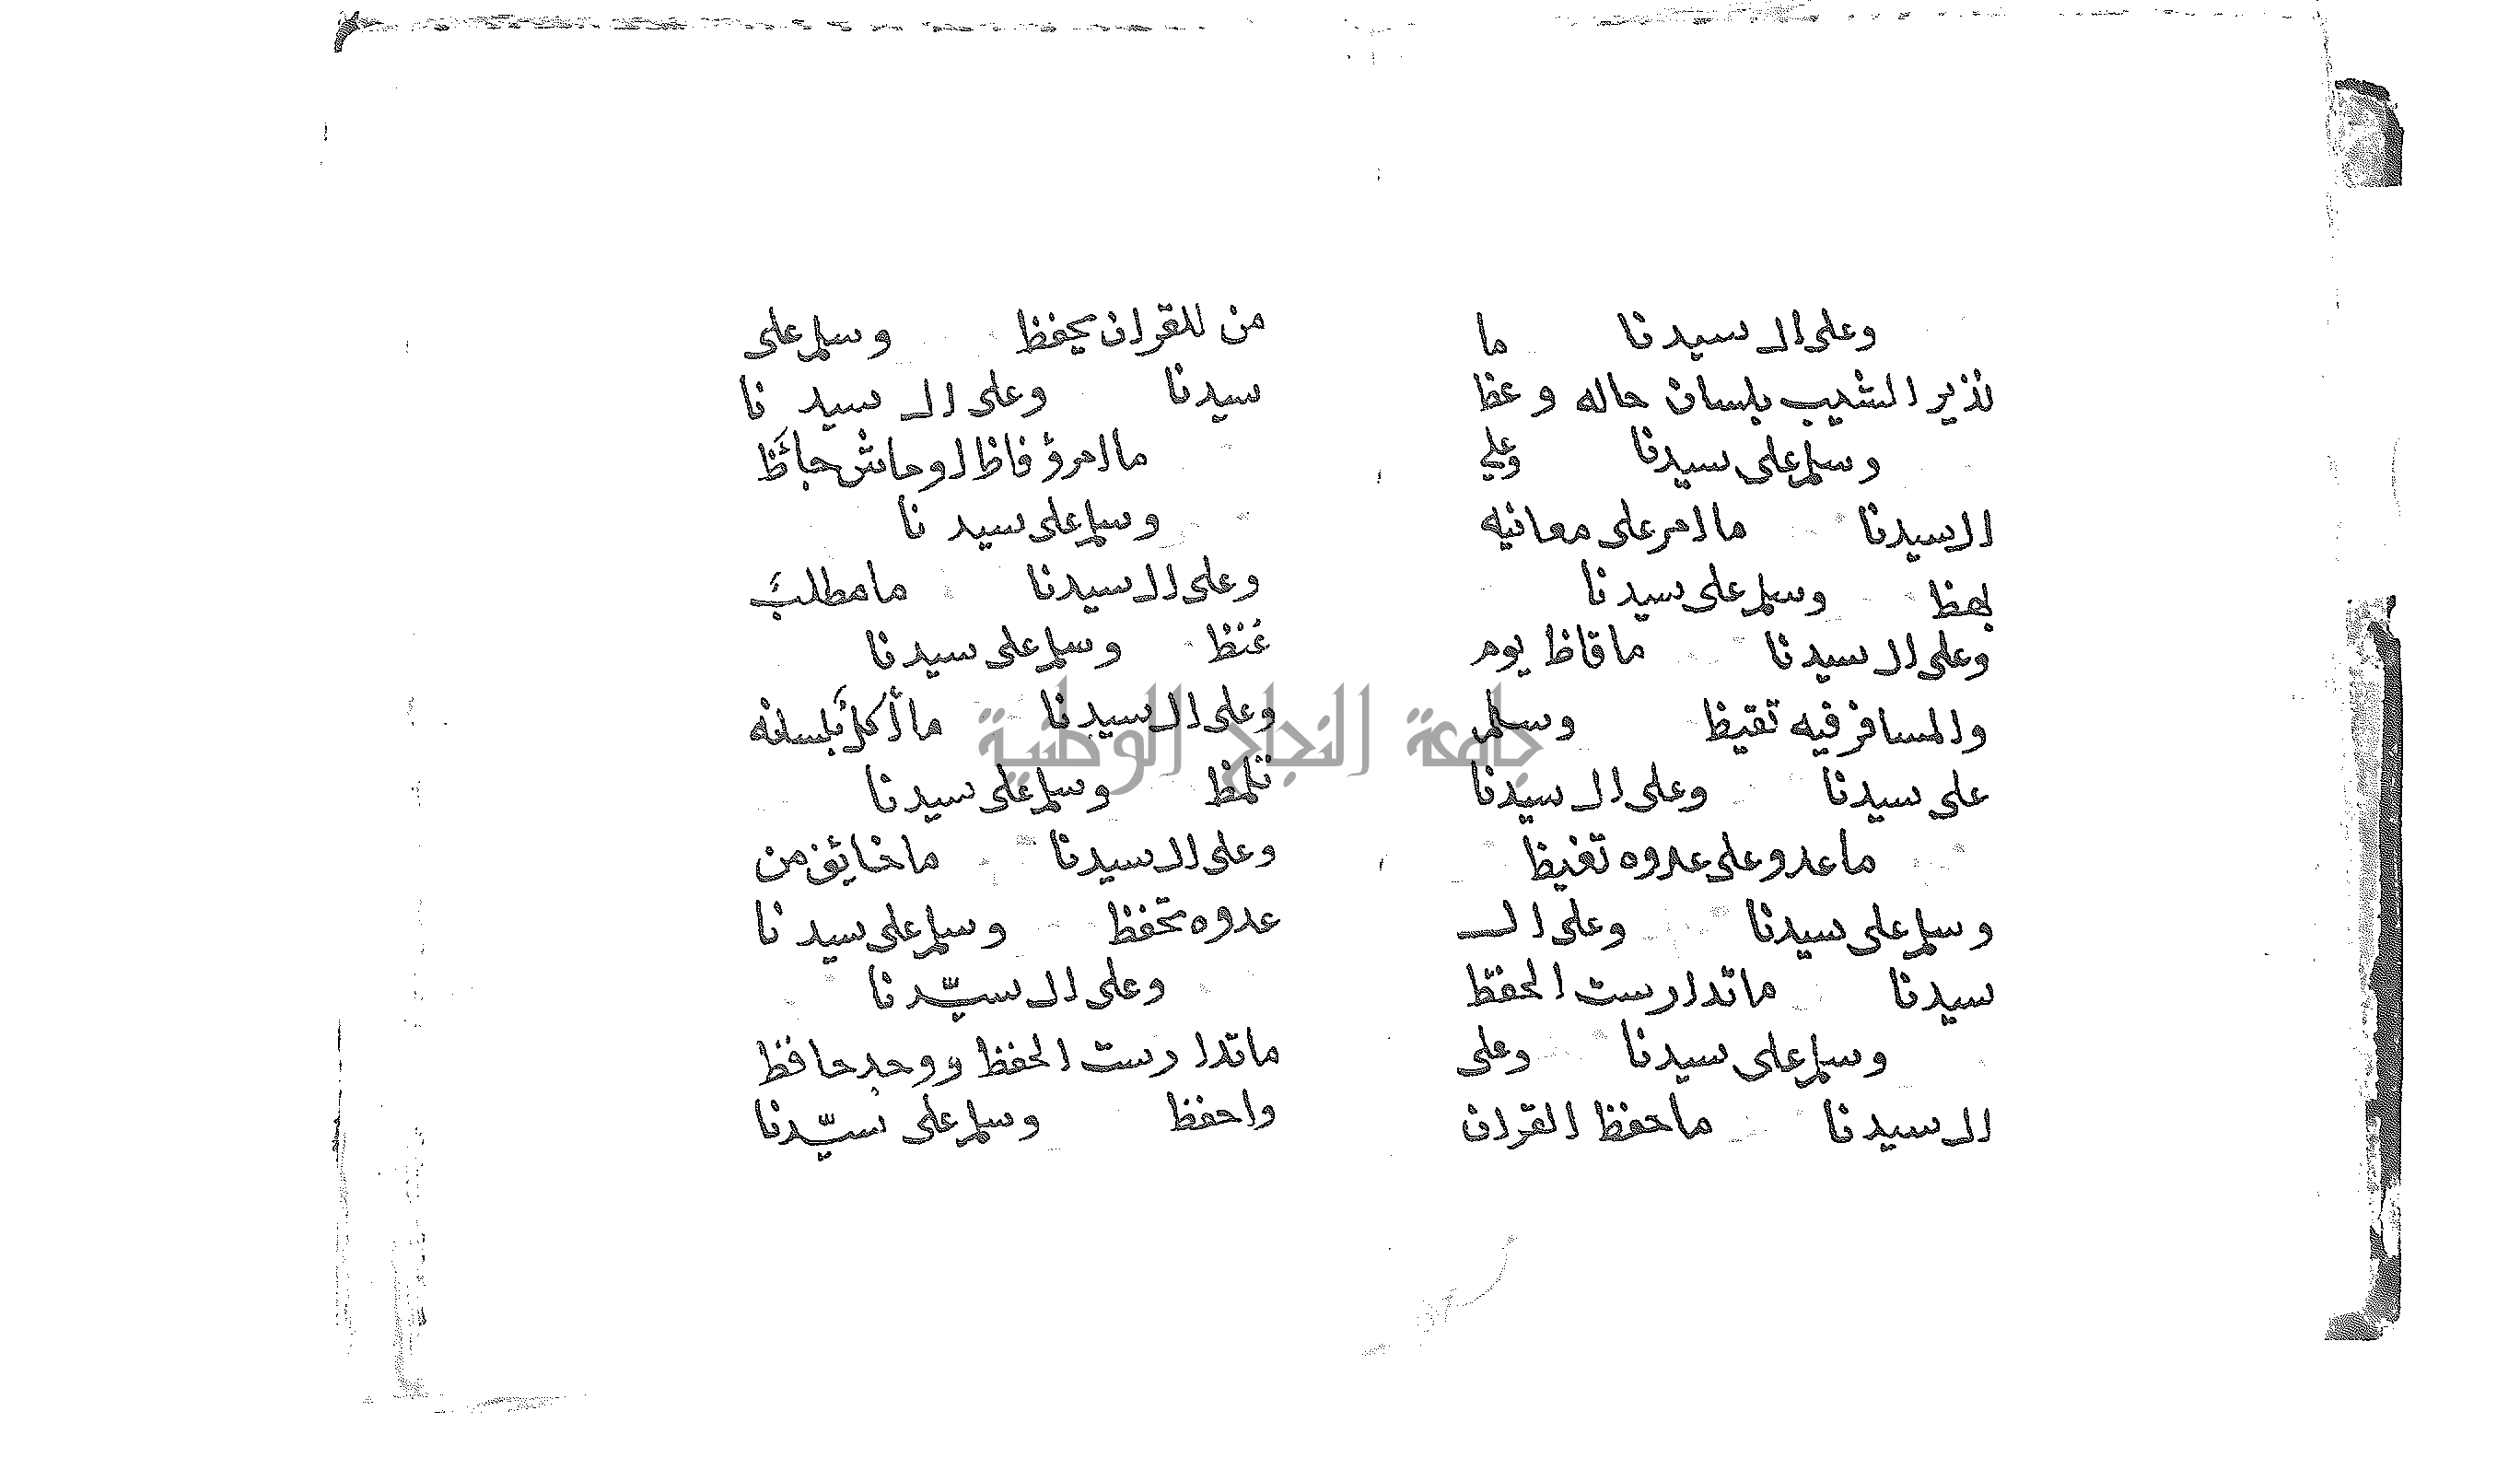 وعلى ال سيدنا ما
نذير الشيب بلسان حاله وعظ
وسلم على سيدنا وعلى
ال سيدنا ما امر على معانيه
بهظ وسلم على سيدنا
وعلى ال سيدنا ما قاظ يوم
والمسافر فيه تقيظ وسلم
على سيدنا وعلى ال سيدنا
ما عدو على عدوه تغيظ
وسلم على سيدنا وعلى ال
سيدنا ما تدارست الحفظ
وسلم على سيدنا وعلى
ال سيدنا ما حفظ القران
من للقران يحفظ وسلم على
سيدنا وعلى ال سيدنا
ما امرؤ فاظ او جاش
وسلم على سيدنا
وعلى ال سيدنا ما مطلب
عنظ وسلم على سيدنا
وعلى ال سيدنا ما أكل بلسانه
تلمظ وسلم على سيدنا
وعلى ال سيدنا ما خايف من
عدوه تحفظ وسلم على سيدنا
وعلى ال سيّدنا
ما تدارست الحفظ ووجد حافظ
واحفظ وسلم على سيّدنا
جامعة النجاح الوطنية